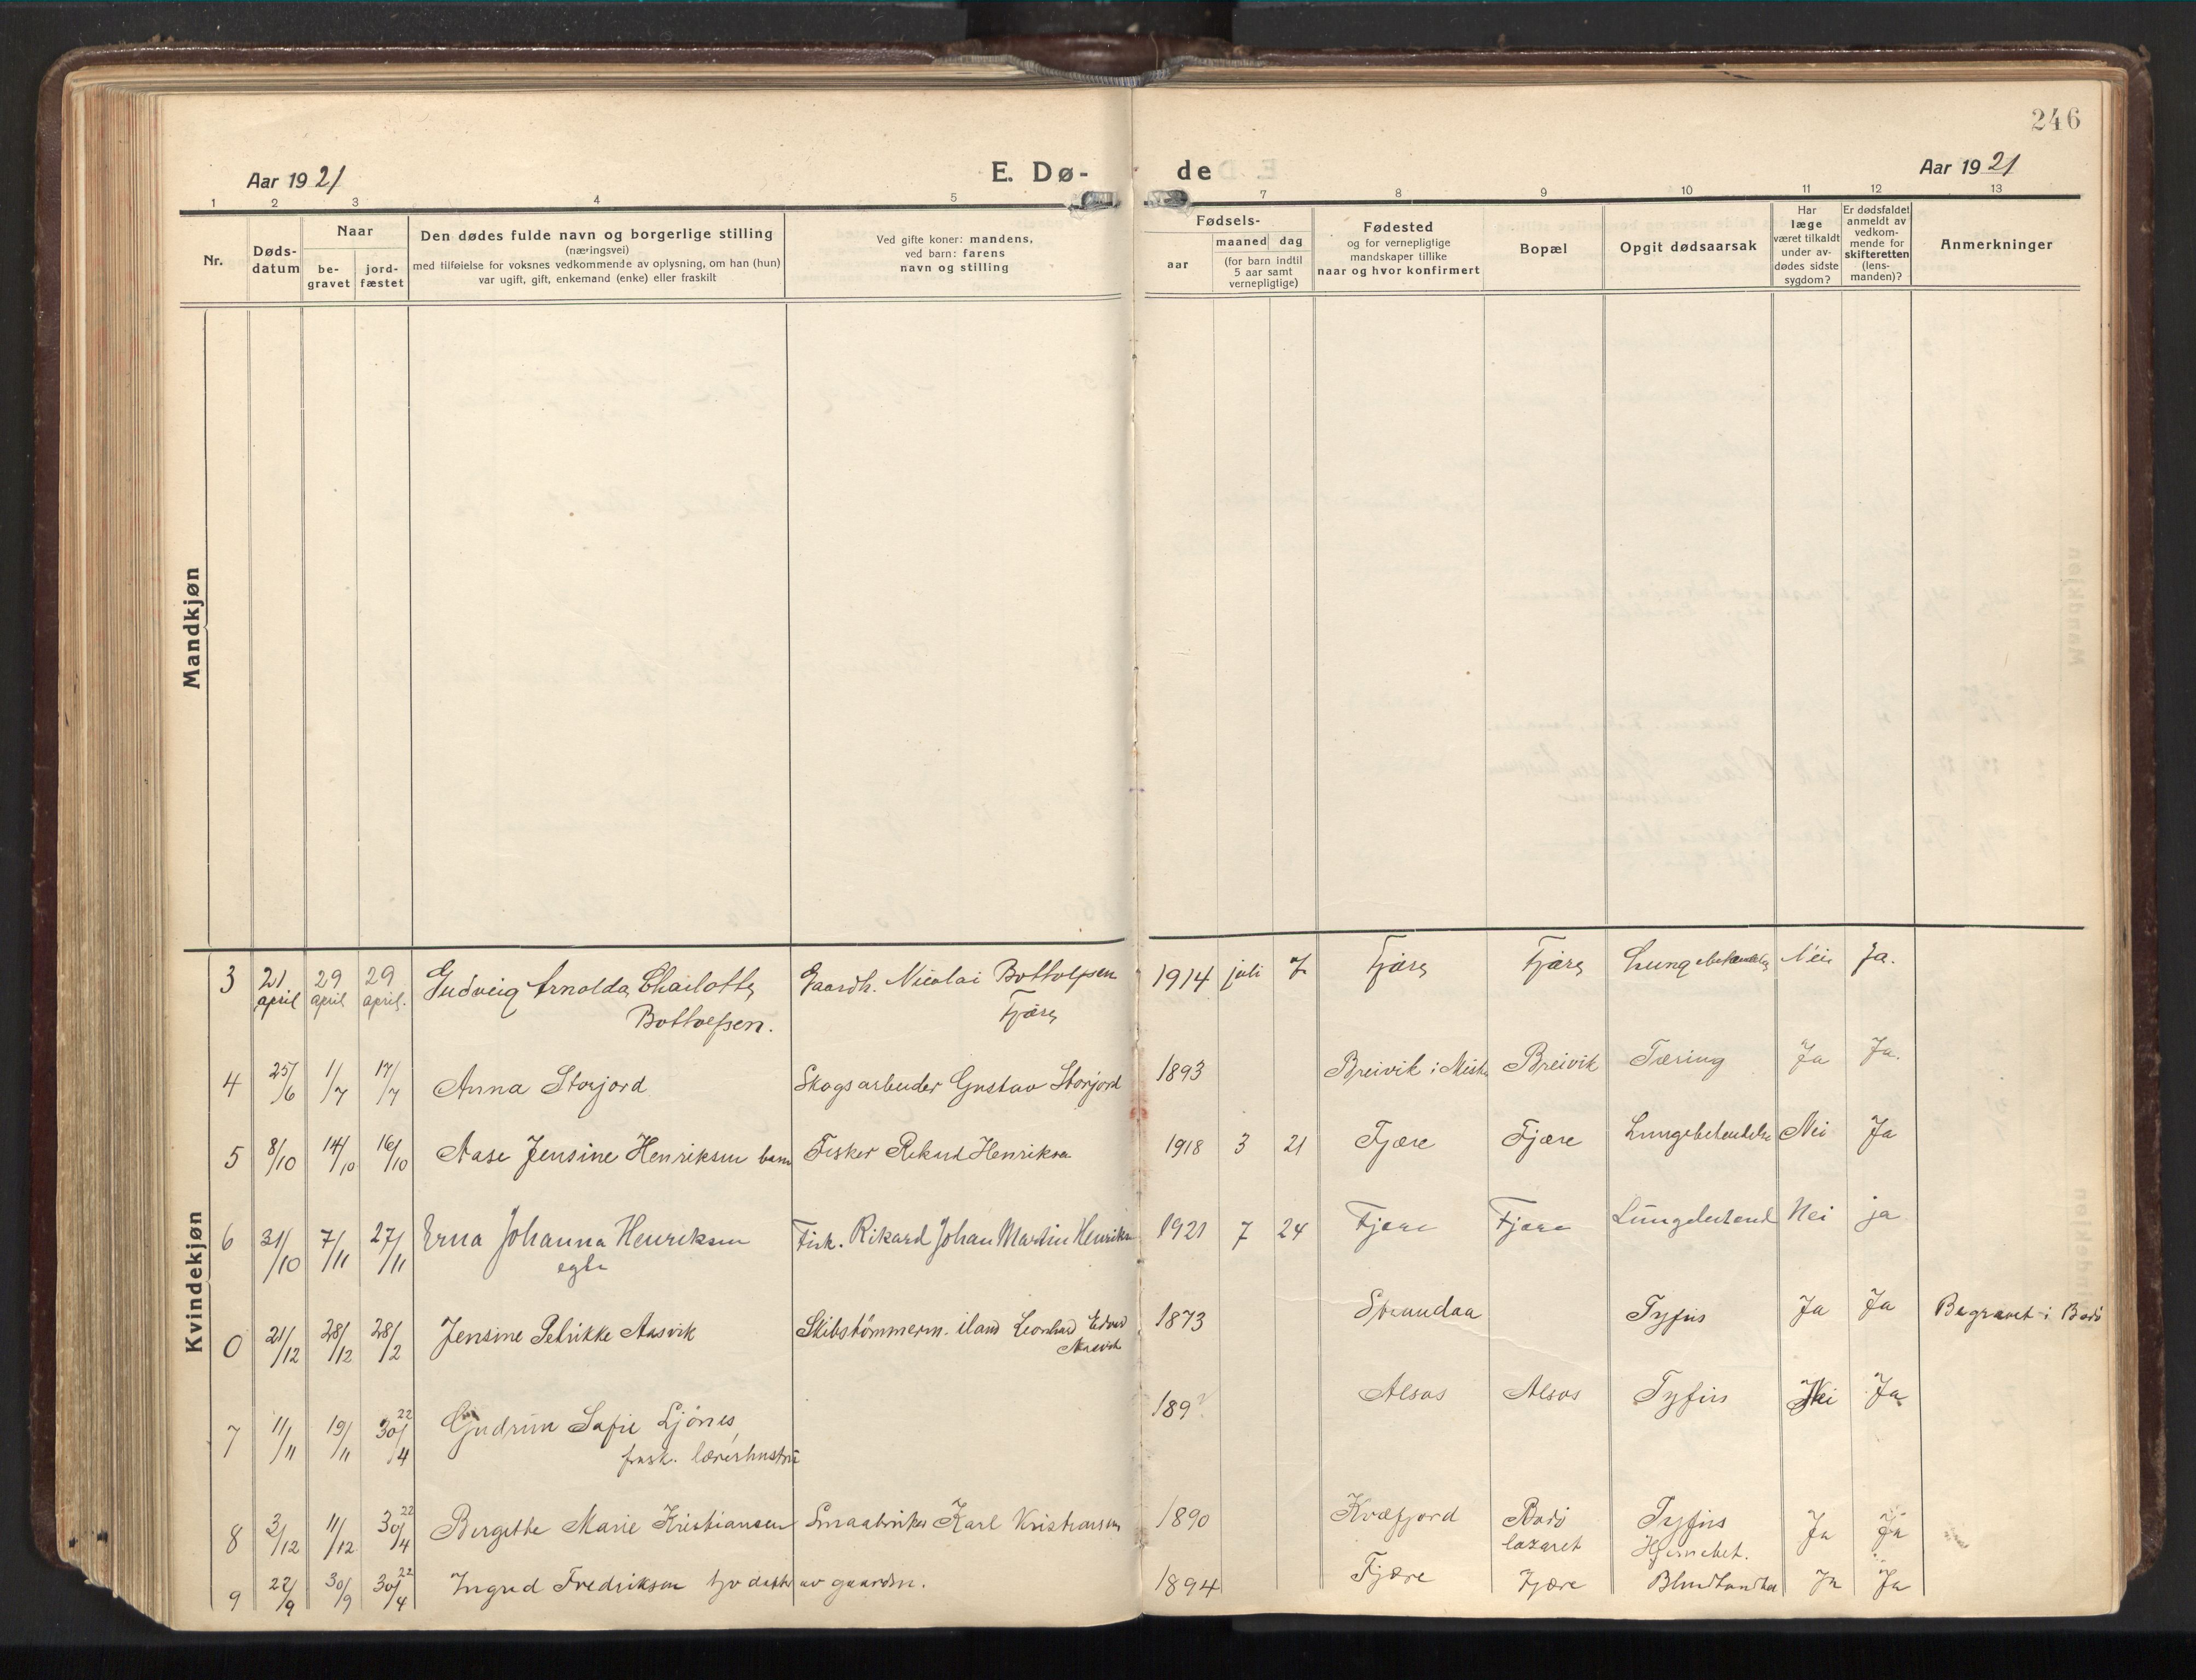 246
Aar 1921
E. Dø-
de
Aar 1921
1 2 3 4 5 7 8 9 10 11 12 13
Nr.
Døds-
datum
Naar
be-
gravet
jord-
fæstet
Den dødes fulde navn og borgerlige stilling
(næringsvei)
med tilføielse for voksnes vedkommende av oplysning, om han (hun)
var ugift, gift, enkemand (enke) eller fraskilt
Ved gifte koner: mandens,
ved barn: farens
navn og stilling
Fødsels-
aar
maaned dag
(for barn indtil
5 aar samt
vernepligtige)
Fødested
og for vernepligtige
mandskaper tillike
naar og hvor konfirmert
Bopæl
Opgit dødsaarsak
Har
læge
været tilkaldt
under av-
dødes sidste
sygdom?
Er dødsfaldet
anmeldt av
vedkom-
mende for
skifteretten
(lens-
manden)?
Anmerkninger
Mandkjøn
Kvindekjøn
3 21 29 29 Gudveig Arnolda Charlotte Gaardb. Nicolai Bottolfsen 1914 juli 7 Fjære Fjære Lungebetændelse Nei Ja.
april april april. Bottolfsen. Fjære
4 25/6 1/7 17/7 Anna Storjord Skogsarbeider Gustav Storjord 1893 Breivik i Breivik Tæring Ja Ja.
5 8/10 14/10 16/10 Aase Jensine Henriksen barn Fisker Rikard Henriksen 1918 3 21 Fjære Fjære Lungebetendelse Nei Ja
6 31/10 7/11 27/11 Erna Johanna Henriksen Fisk. Rikard Johan Martin Henriksen 1921 7 24 Fjære Fjære Lungebetend Nei ja
egte
0 21/12 28/12 28/2 Jensine Petrikke Aasvik Skibstömmerm. iland Leonhard Edvard 1873 Tyfus Ja Ja Begravet i Bodö
Aasvik
7 11/11 19/11 30/4 22 Gudrun Sofie Ljönes, 189 Alsos Alsos Tyfus Nei Ja
frask. lærerhustru
8 3/12 11/12 30/4 22 Bergitte Marie Kristiansen Smaabruker Karl Kristiansen 1890 Kvæfjord Bodö Tyfus Ja Ja
lazaret Hjernebet.
9 22/9 30/9 30/4 22 Ingrid Fredriksen av gaardbr. 1894 Fjære Fjære Ja Ja